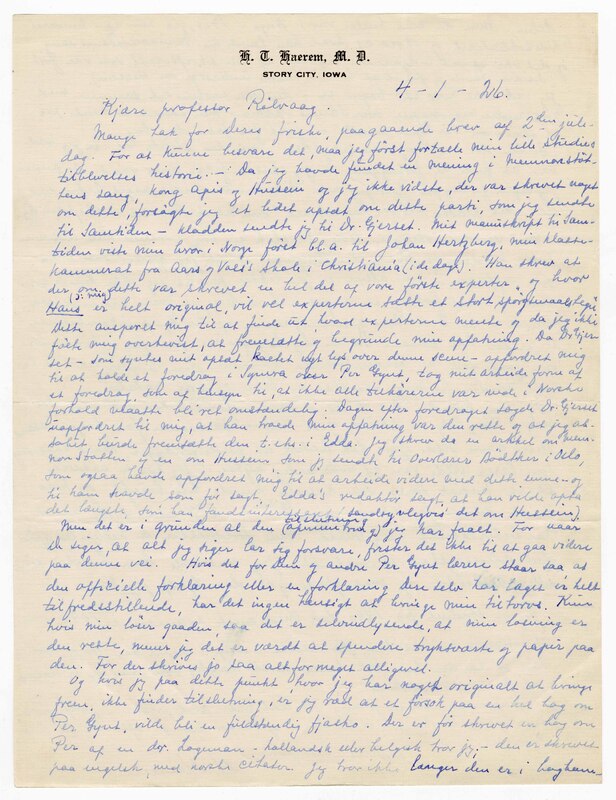 H. T. Haerem, M. D.
STORY CITY, IOWA
4 - 1 - 26.
Kjære professor Rølvaag.
Mange tak for Deres friske, paagaaende brev af 2den jule-
dag. For at kunne besvare det, maa jeg först fortælle min lille studies
tilblivelses historie. - Da jeg havde fundet en mening i memnonstöt-
tens sang, kong Apis og Hussein og jeg ikke vidste, der var skrevet noget
om dette, forsögte jeg et lidet opsæt om dette parti, som jeg sendte
til Samtiden - kladden sendte jeg til Dr. Gjerset. Mit manuskript til Sam-
tiden viste min bror i Norge först bl. a. til Johan Hertzberg, min klasse-
kammerat fra Aars og Voss's skole i Christiania (i de dage). Han skrev at
der om dette var skrevet en hel del af vore förste experter "og hvor
Hans (ɔ: mig) er helt original, vil vel experterne sætte et stort spörgsmaalstegn"
Dette ansporet mig til at finde ut hvad experterne mente og da jeg ikke
fölte mig overbevist, at fremsætte og begrunde min opfatning. Da Dr. Gjer-
set - som syntes mit opsæt kastet nyt lys over denne scene - opfordret mig
til at holde et foredrag i Symra over Per Gynt, tog mit arbeide form af
et foredrag, som af hensyn til, at ikke alle tilhörerne var inde i Norske
forhold maatte bli ret omstændelig. Dagen efter foredraget sagde Dr. Gjerset
uopfordret til mig, at han troede min opfatning var den rette og at jeg ab-
solut burde fremsætte den t. eks. i Edda. Jeg skrev da en artikel om mem-
nonstötten og en om Hussein som jeg sendte til Overlærer Bödtker i Oslo,
som ogsaa havde opfordret mig til at arbeide videre med dette emne - og
til ham havde som för sagt, Edda's redaktör sagt, at han vilde opta
det længste, som han fandt interessant (sandsynligvis det om Hussein).
Men det er i grunden al den tilslutning (opmuntring) jeg har faaet. For naar
De siger, at alt jeg siger lar sig forsvare, frister det ikke til at gaa videre
paa denne vei. Hvis det for Dem og andre Per Gynt lærere staar saa at
den officielle forklaring eller en forklaring Dere selv har laget er helt
tilfredsstillende, har det ingen hensigt at bringe min til torvs. Kun
hvis min löser gaaden, saa det er selvindlysende, at min løsning er
den rette, mener jeg det er værdt at spendere tryksværte og papir paa
den. For der skrives jo saa altfor meget alligevel.
Og hvis jeg paa dette punkt, hvor jeg har noget originalt at bringe
frem, ikke finder tilslutning, er jeg ræd at et forsök paa en hel bog om
Per Gynt, vilde bli en fuldstændig fiasko. Der er för skrevet en bog om
Per af en dr. Logeman - hollandsk eller belgisk tror jeg, - den er skrevet
paa engelsk, med norske citater. Jeg tror ikke længer den er i boghan-